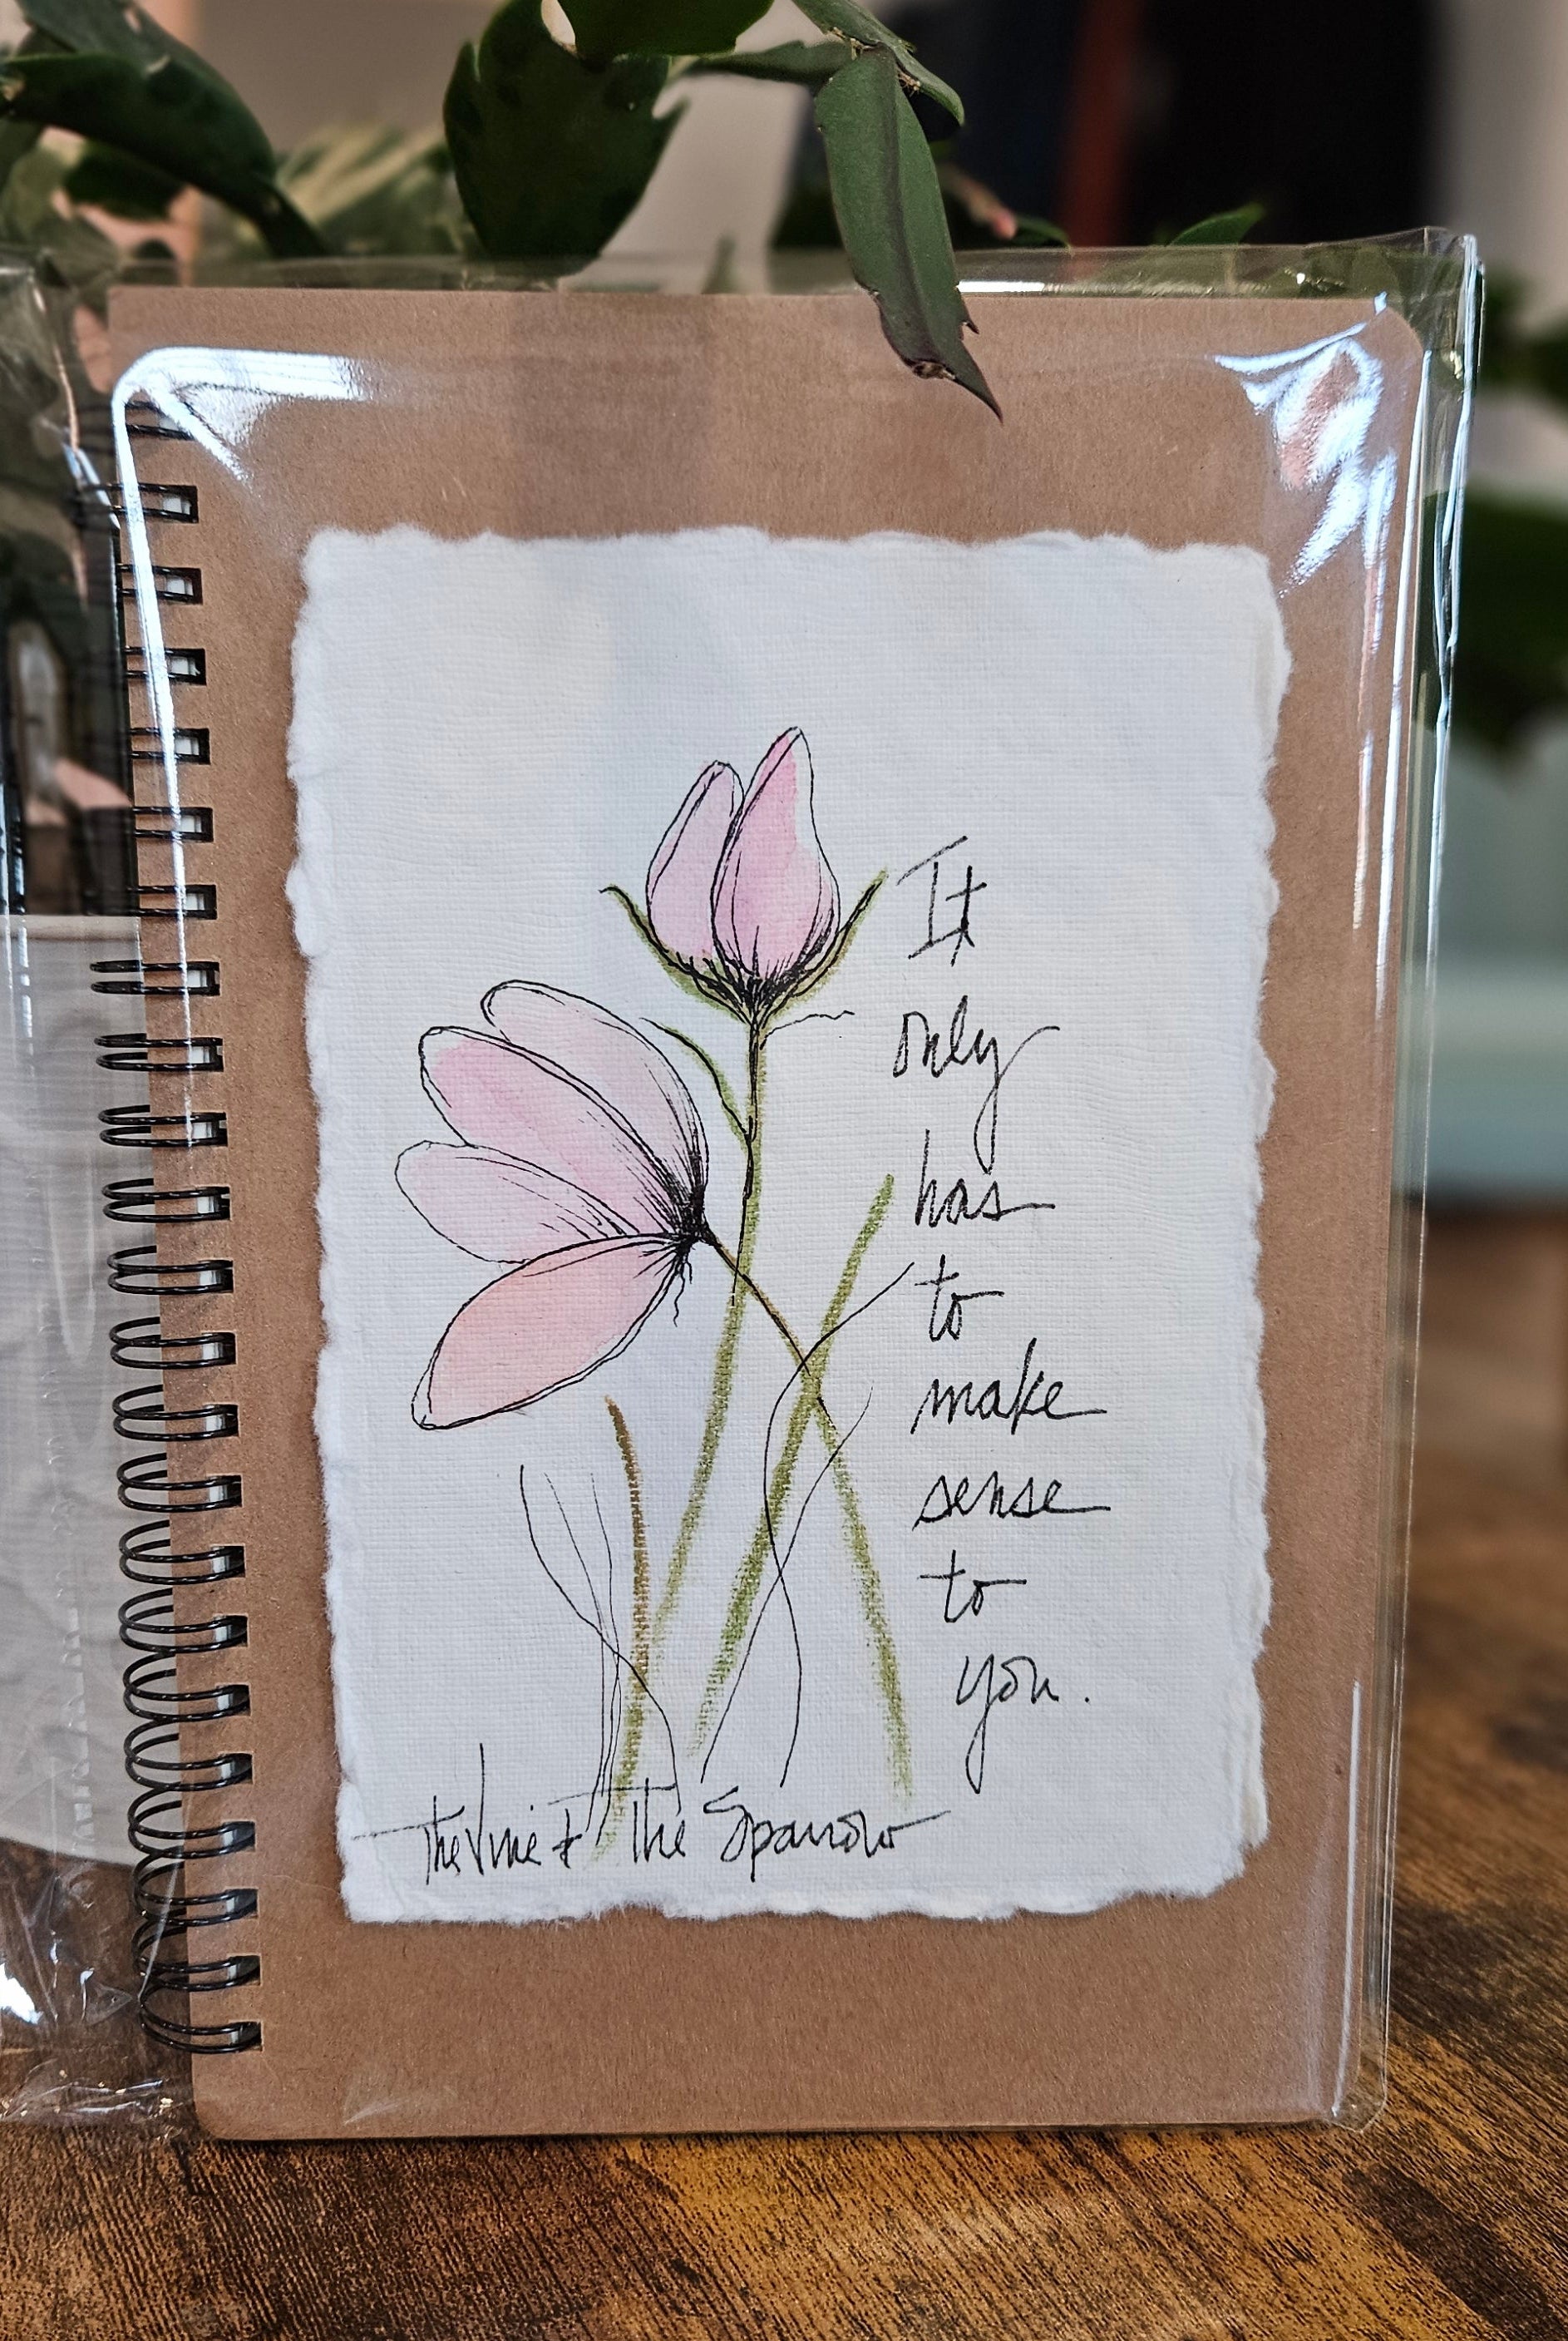 It
only
has
to
make
sense
to
you.
The Vine & The Sparrow